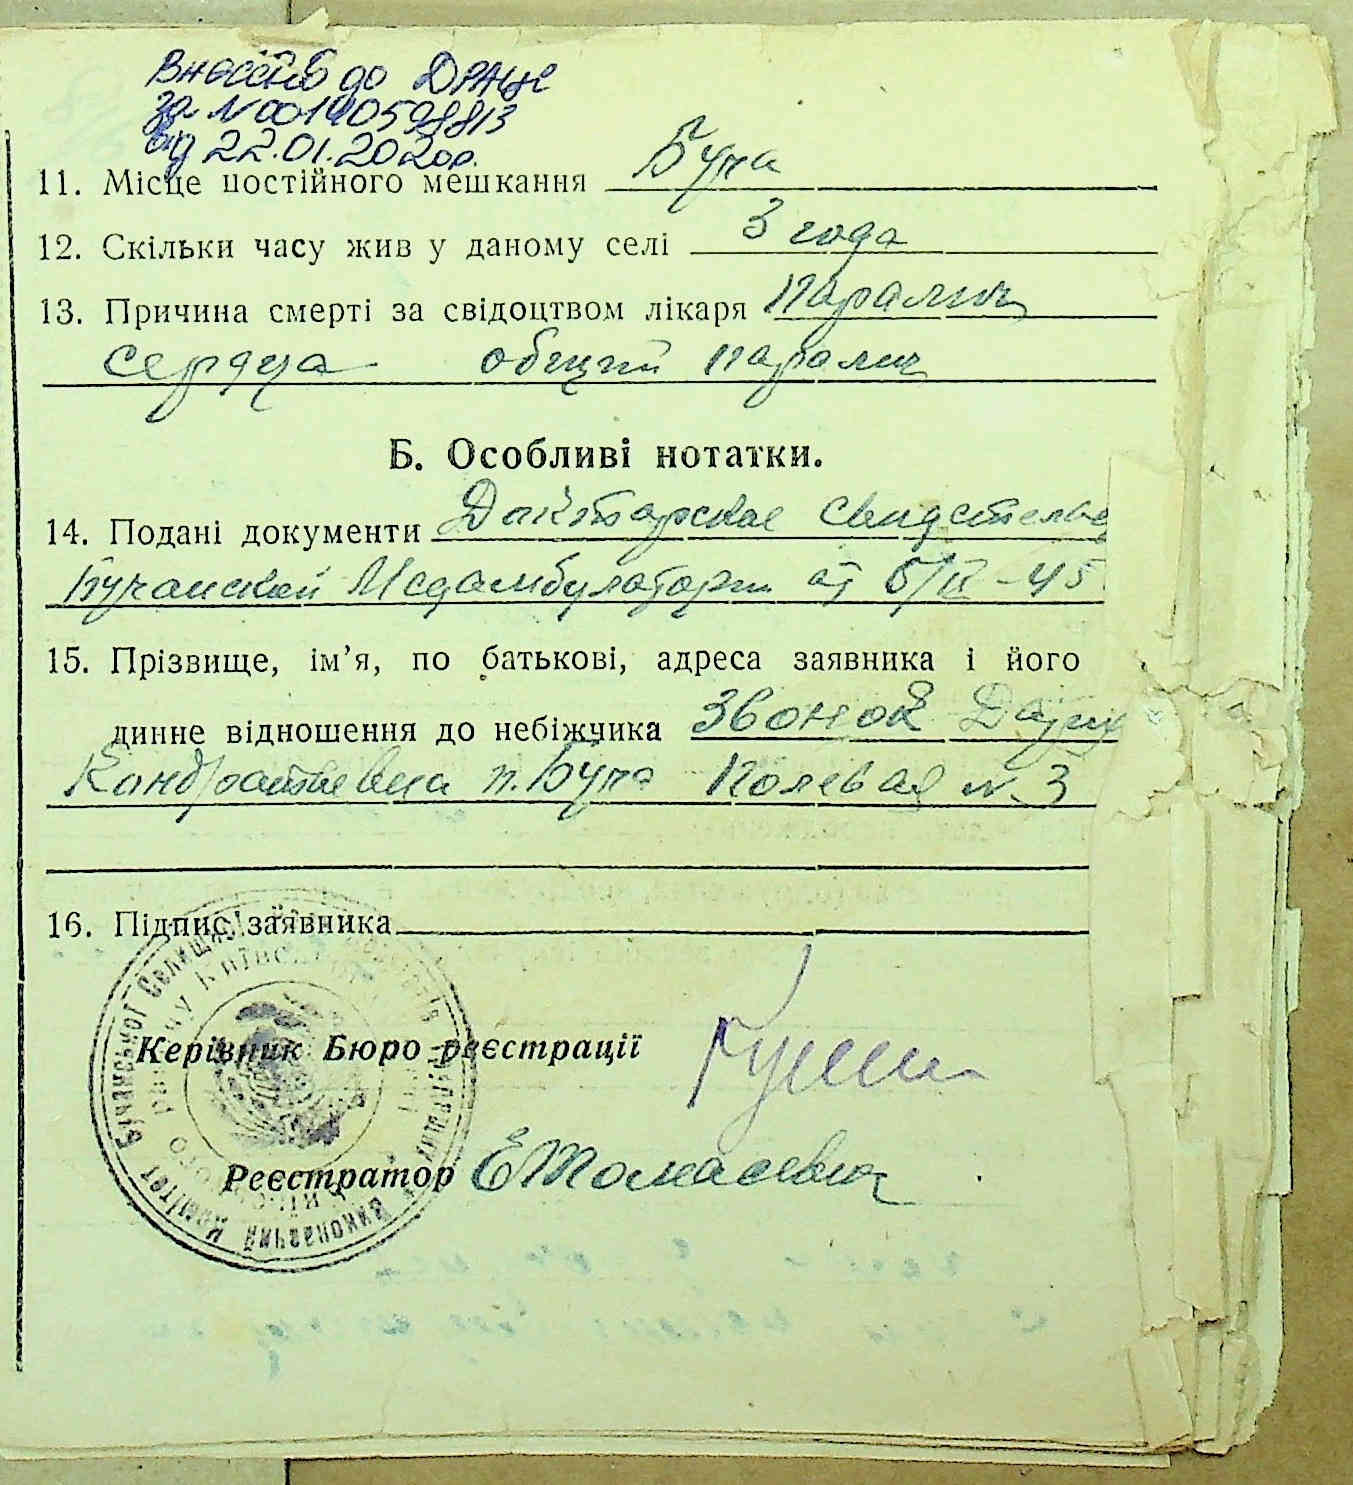 Внесено до ДРАЦС
за №00140598813
від 22.01.2020р.
11. Місце постійного мешкання Буча
12. Скільки часу жив у даному селі 3 года
13. Причина смерті за свідоцтвом лікаря Паралич
сердца общий паралич
Б. Особливі нотатки.
14. Подані документи Докторское свидетельс
Бучанской Медамбулатории от 5/II-45
15. Прізвище, ім'я, по батькові, адреса заявника і його
динне відношення до небіжчика Звонок Дарья
Кондратьевна п. Буча Полевая № 3
16. Підпис заявника
Керівник Бюро реєстрації
Реєстратор ЕТомасевич
Виконавчий Комітет Бучанської Селищн